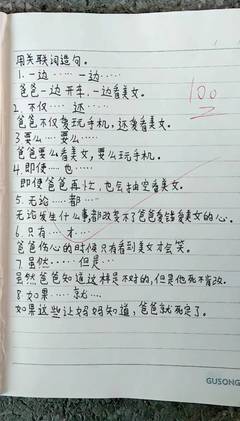 用关联词造句。
100
1. 一边…… 一边……
爸爸一边开车,一边看美女。
2. 不仅…… 还……
爸爸不仅爱玩手机,还爱看美女。
3 要么…… 要么……
爸爸要么看美女,要么玩手机。
4. 即使…… 也……
即使爸爸再忙,也会抽空看美女。
5. 无论……都……
无论发生什么事,都改变不了爸爸爱看美女的心。
6. 只有… 才……
爸爸伤心的时候只有看到美女才会笑。
7. 虽然…… 但是……
虽然爸爸知道这样是不对的,但是他死不肯改。
8 如果……就……
如果这些让妈妈知道,爸爸就死定了。
GUSONG